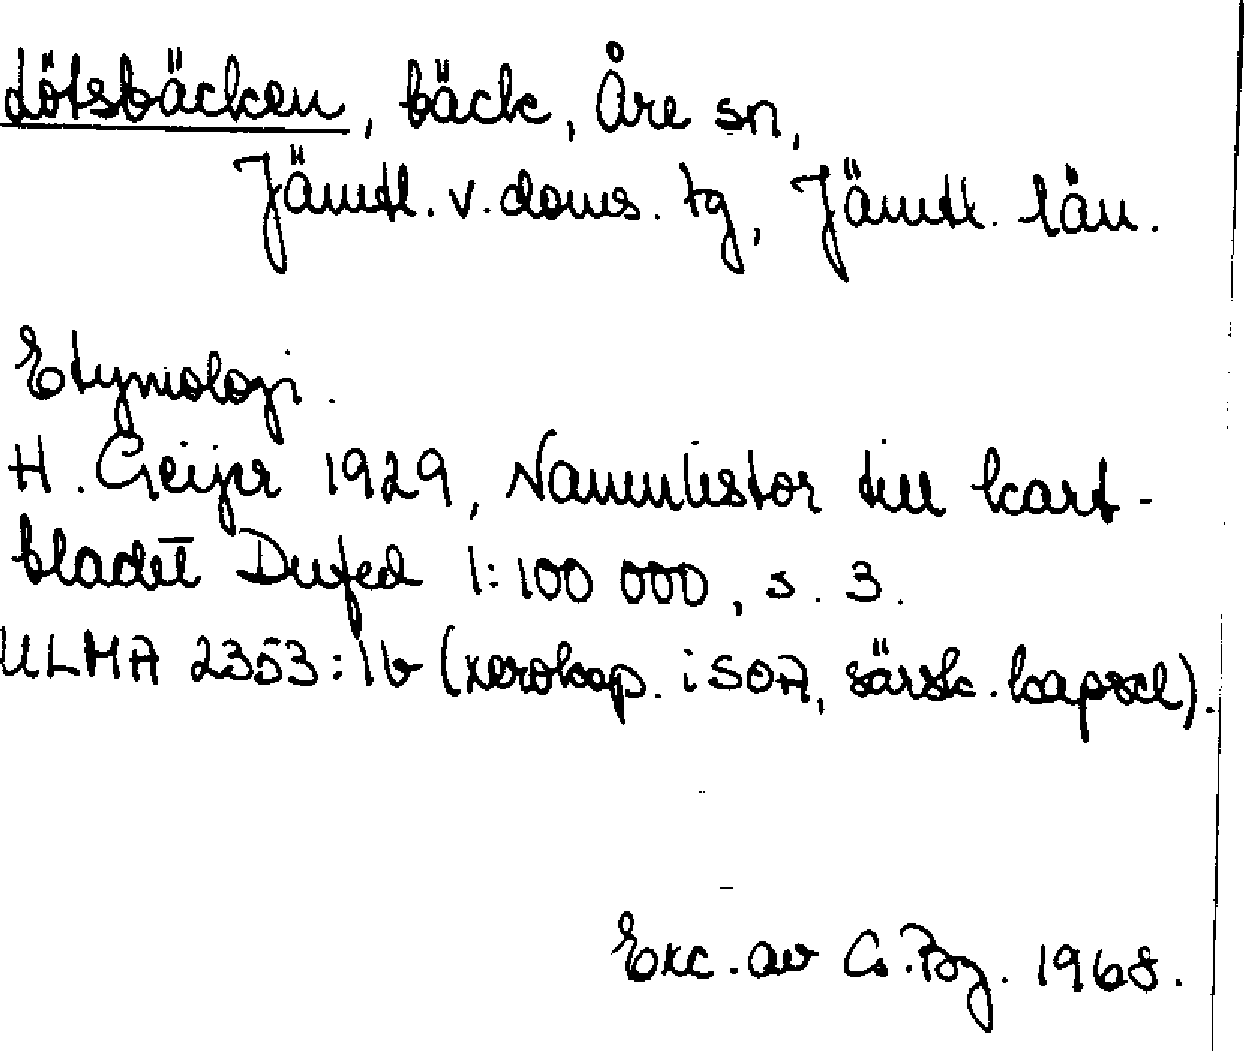 Lötsbäcken, bäck, Åre sn,
Jämtl. v. doms. tg, Jämtl. län.
Etymologi.
H. Geijer 1929, Namnlistor till kart-
bladet Dufed 1:100 000, s. 3.
ULMA 2353:1b (xerokop. i SOA, särsk. kapsel).
Exc. av G. Bg. 1968.